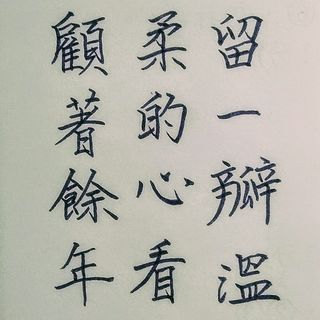 留一瓣溫
柔的心看
顧著餘年